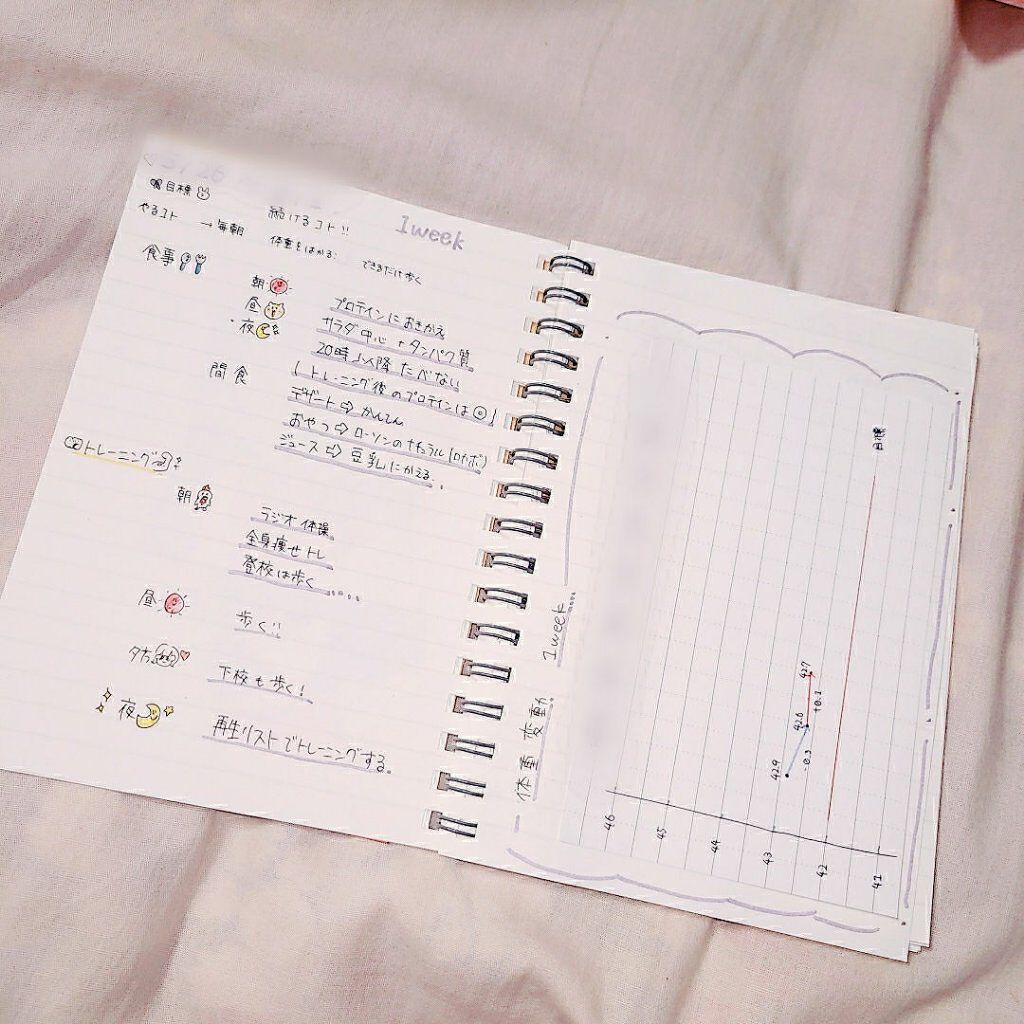 目標
1week
やるコト
続けるコト!!
→毎朝
体重をはかる
できるだけ歩く
食事
朝
プロテインにおきかえ
昼
サラダ中心+タンパク質
夜
20時以降たべない
(トレーニング後のプロテインは◎)
間食
デザート⇨かんてん
おやつ⇨ローソンのナチュラル
ジュース⇨豆乳にかえる..
トレーニング
朝
ラジオ体操
全身痩せトレ
登校は歩く....
昼
歩く!!
夕方
下校も歩く!
夜
再生リストでトレーニングする.
体重変動 1week....
46
45
44
43
42
41
429
-0.3
426
+0.1
427
目標